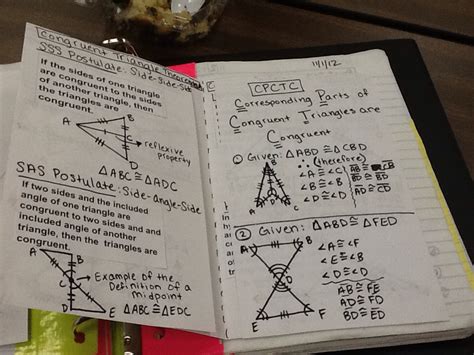 Congruent Triangle Theorems
SSS Postulate: Side-Side-Side
If the sides of one triangle
are congruent to the sides
of another triangle, then
the triangles are
congruent.
B
A
C
D
reflexive
property
△ABC ≅ △ADC
SAS Postulate: Side-Angle-Side
If two sides and the included
angle of one triangle are
congruent to two sides and and
included angle of another
triangle, then the triangles are
congruent.
A
B
C
D
E
Example of the
Definition of a
Midpoint
△ABC ≅ △EDC
11/1/12
CPCTC
Corresponding Parts of
Congruent Triangles are
Congruent
① Given: △ABD ≅ △CBD
∴ (therefore)
B
A
D
C
<A ≅ <C
<B ≅ <B
<D ≅ <D
AB ≅ CB
BD ≅ BD
AD ≅ CD
② Given: △ABD ≅ △FED
A
B
D
E
F
<A ≅ <F
<E ≅ <B
<D ≅ <D
AB ≅ FE
AD ≅ FD
BD ≅ ED